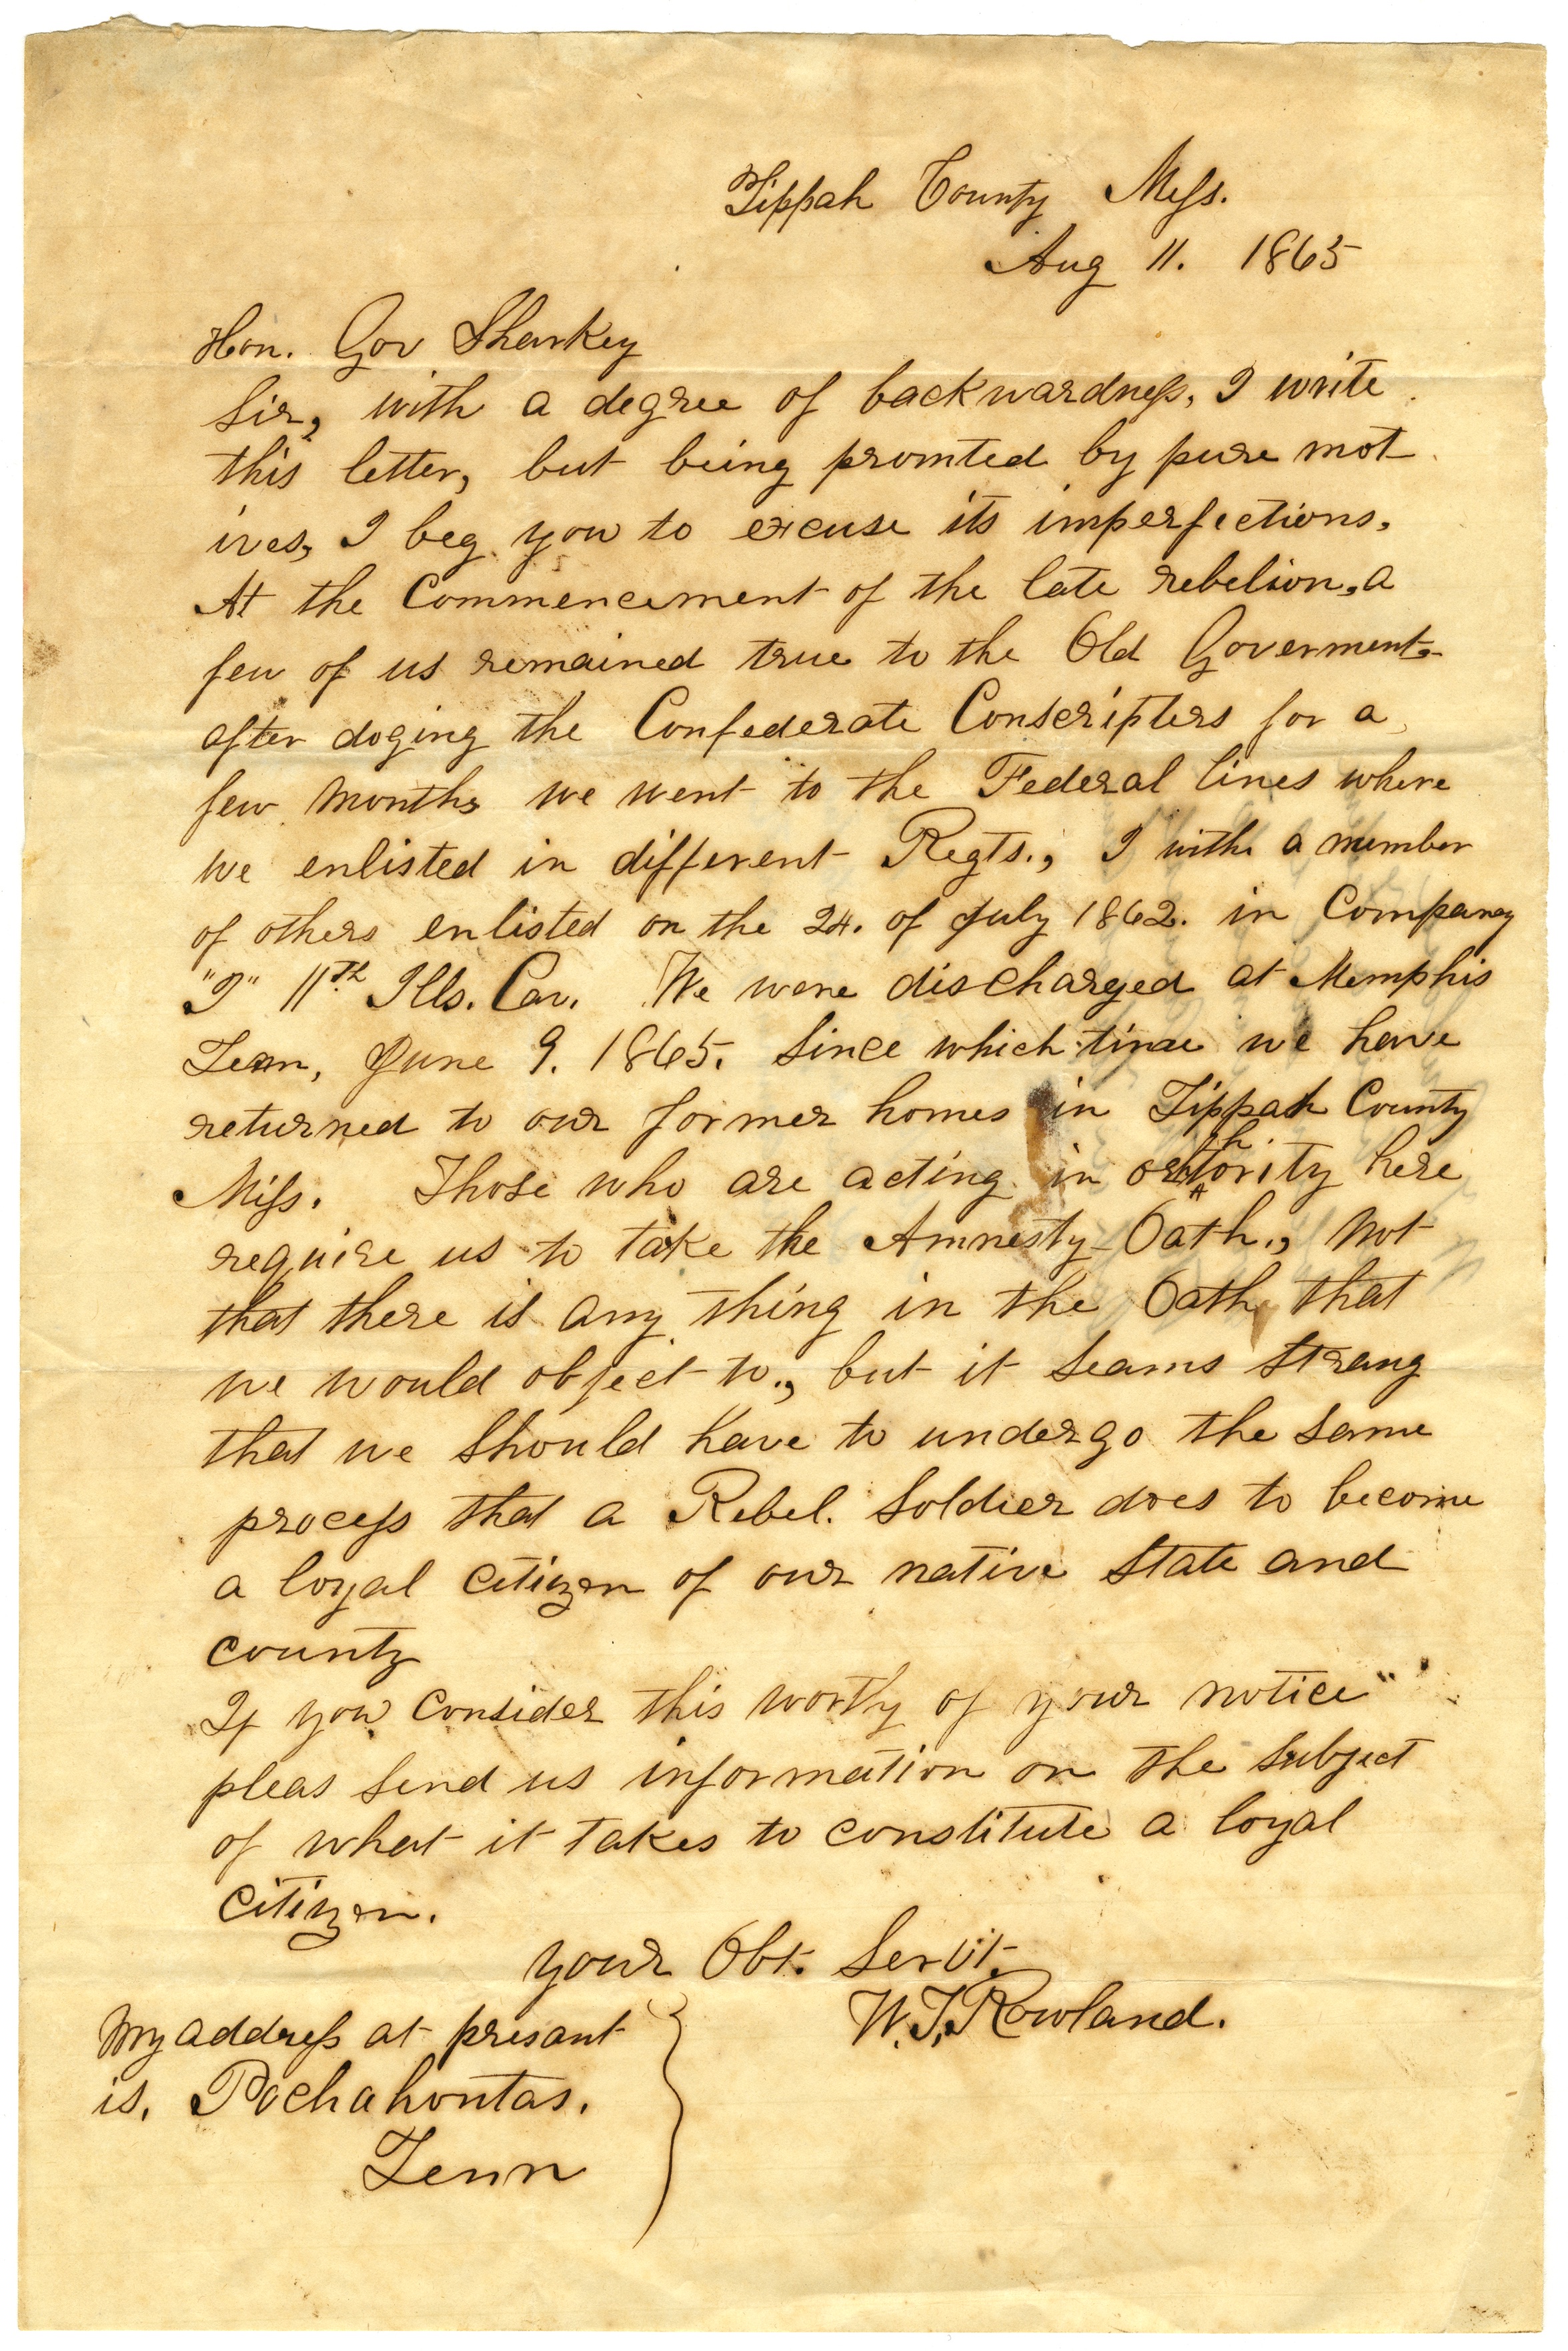 Tippah County Miss.
Aug 11. 1865
Hon. Gov Sharkey
Sir, with a degree of backwardness, I write
this letter, but being promted by pure mot
ives, I beg you to excuse its imperfections.
At the Commencement of the late rebelion, a
few of us remained true to the Old Goverment.
after doging the Confederate Conscripters for a
few months we went to the Federal lines where
we enlisted in different Regts., I with a number
of others enlisted on the 24. of July 1862. in Company
"I" 11th Ills. Cav. We were discharged at Memphis
Tenn, June 9. 1865. Since which time we have
returned to our former homes in Tippah County
Miss. Those who are acting in orthority here
require us to take the Amnesty Oath., Not
that there is any thing in the Oath that
we would object to., but it seams strang
that we should have to undergo the same
process that a Rebel. Soldier does to become
a loyal citizen of our native State and
county
If you consider this worthy of your notice"
pleas send us information on the subject
of what it takes to constitute a loyal
citizen.
your Obt. Servt.
W.T. Rowland.
My address at presant
is, Pochahontas.
Tenn